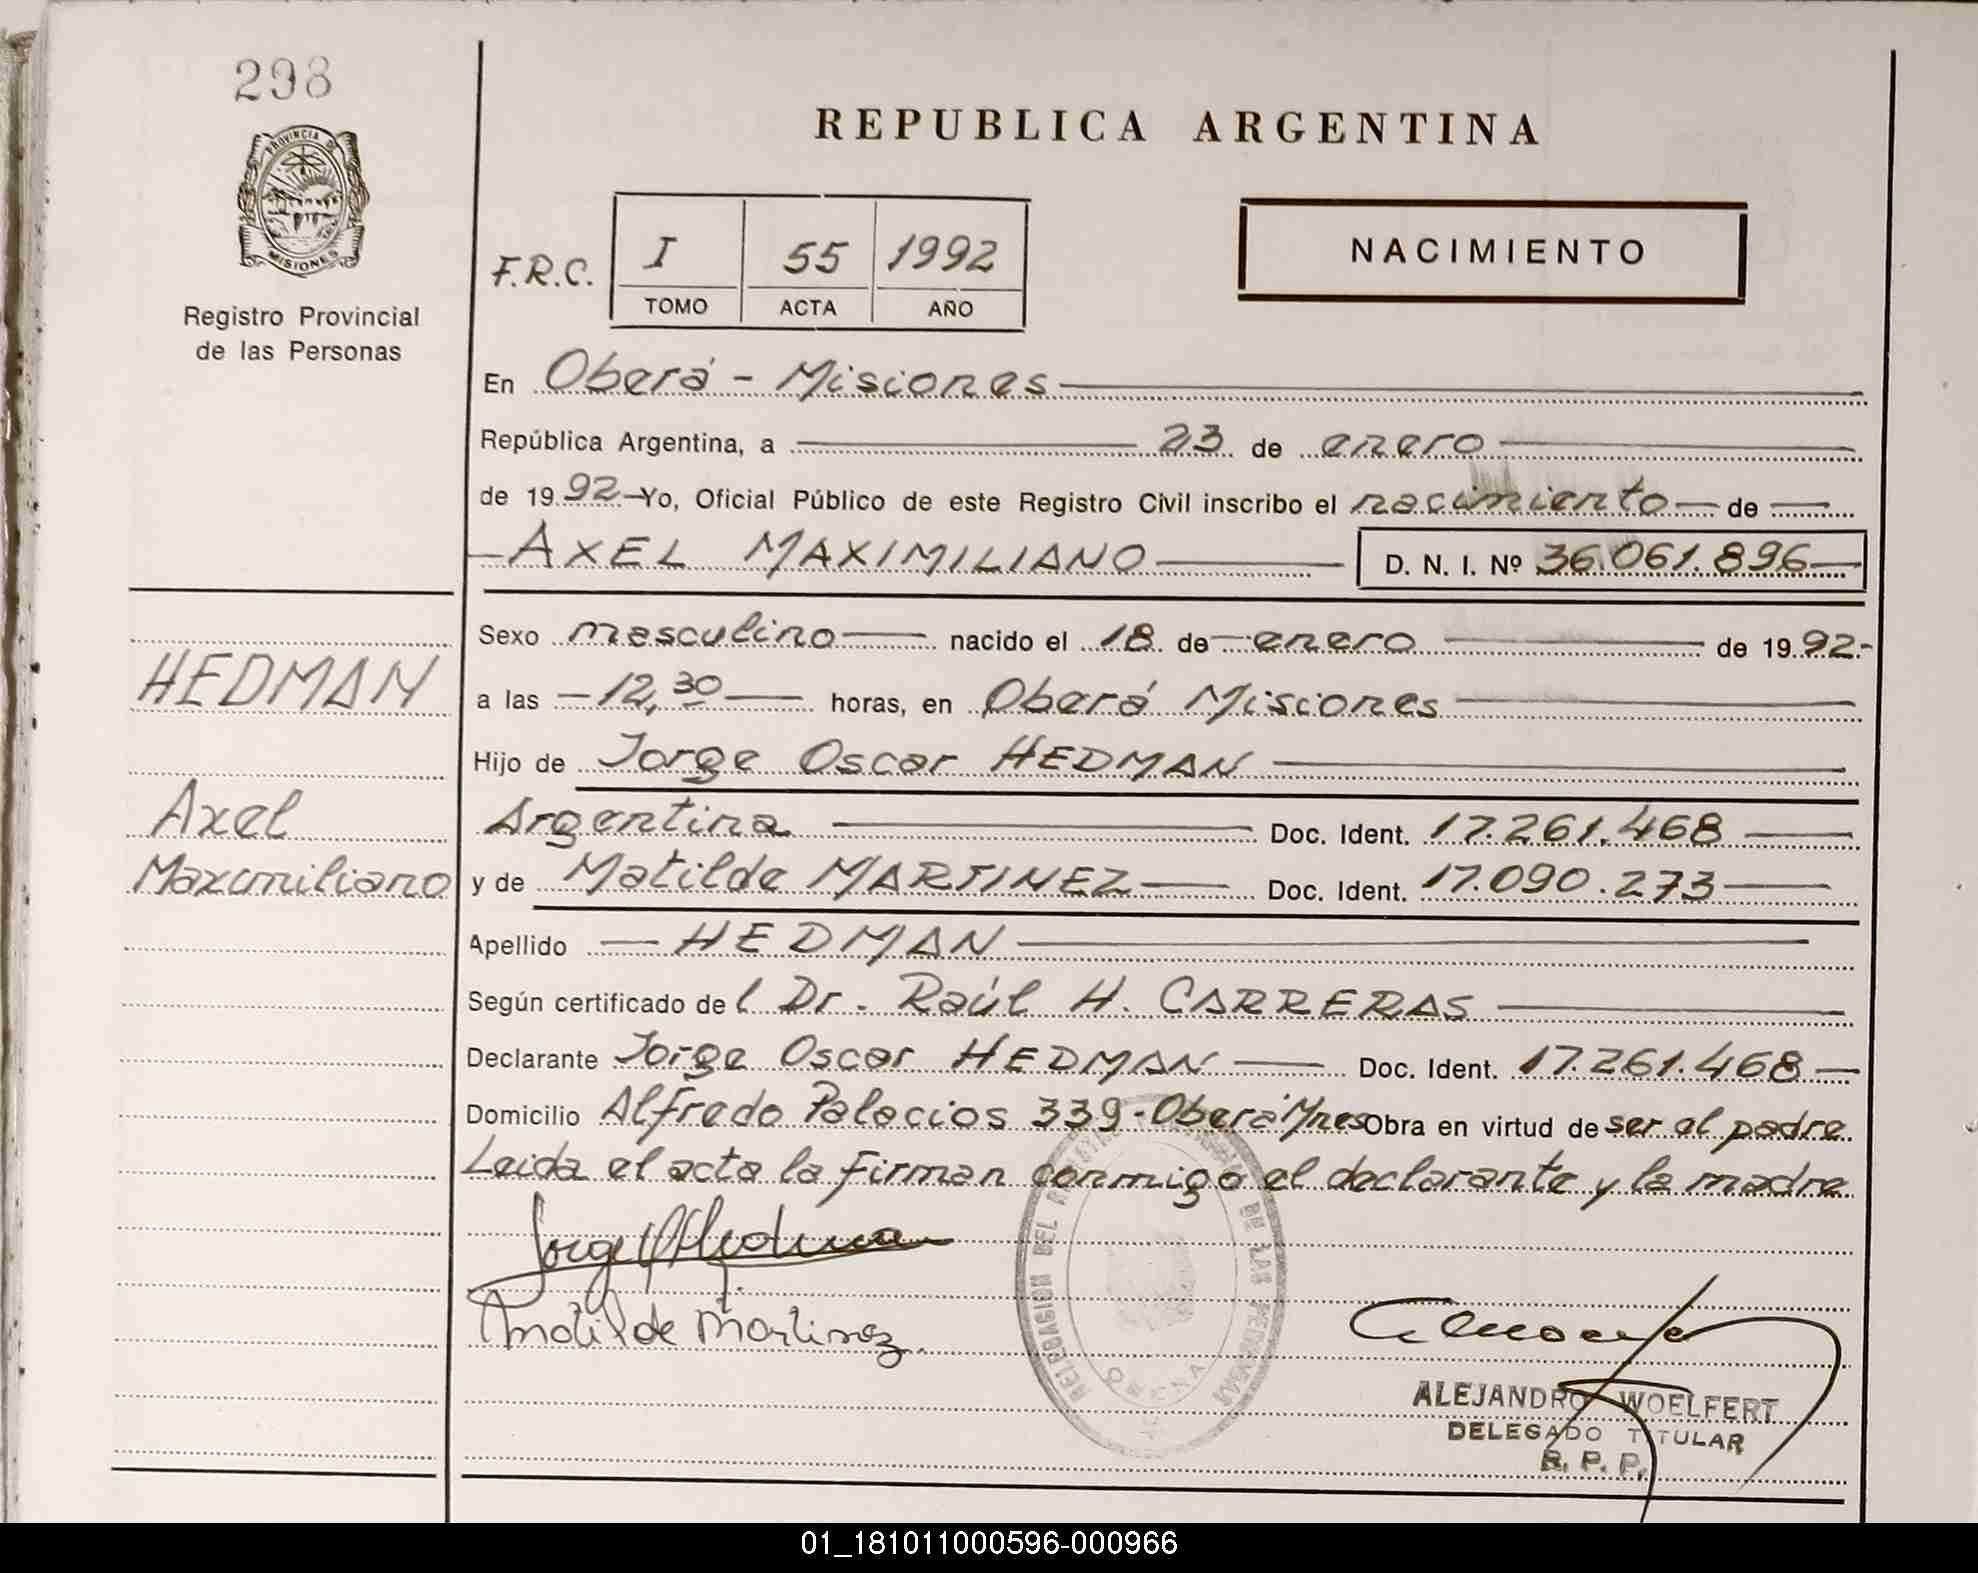 298
PROVINCIA DE
MISIONES
Registro Provincial
de las Personas
REPUBLICA ARGENTINA
F.R.C.
I 55 1992
TOMO ACTA AÑO
NACIMIENTO
En Oberá - Misiones
República Argentina, a 23 de enero
de 1992 Yo, Oficial Público de este Registro Civil inscribo el nacimiento de
AXEL MAXIMILIANO D. N. I. Nº 36.061.896
Sexo masculino nacido el 18 de enero de 1992.-
HEDMAN
a las 12,30 horas, en Oberá Misiones
Hijo de Jorge Oscar HEDMAN
Axel
Argentina Doc. Ident. 17.261.468
Maximiliano
y de Matilde MARTINEZ Doc. Ident. 17.090.273
Apellido HEDMAN
Según certificado del Dr. Raúl H. CARRERAS
Declarante Jorge Oscar HEDMAN Doc. Ident. 17.261.468
Domicilio Alfredo Palacios 339 - Oberá Mnes Obra en virtud de ser el padre
Leida el acta la firman conmigo el declarante y la madre
Jorge Hedman
Matilde Martinez
DELEGACION DEL DE LAS PERSONAS
ALEJANDRO WOELFERT
DELEGADO TITULAR
R. P. P.
01_181011000596-000966